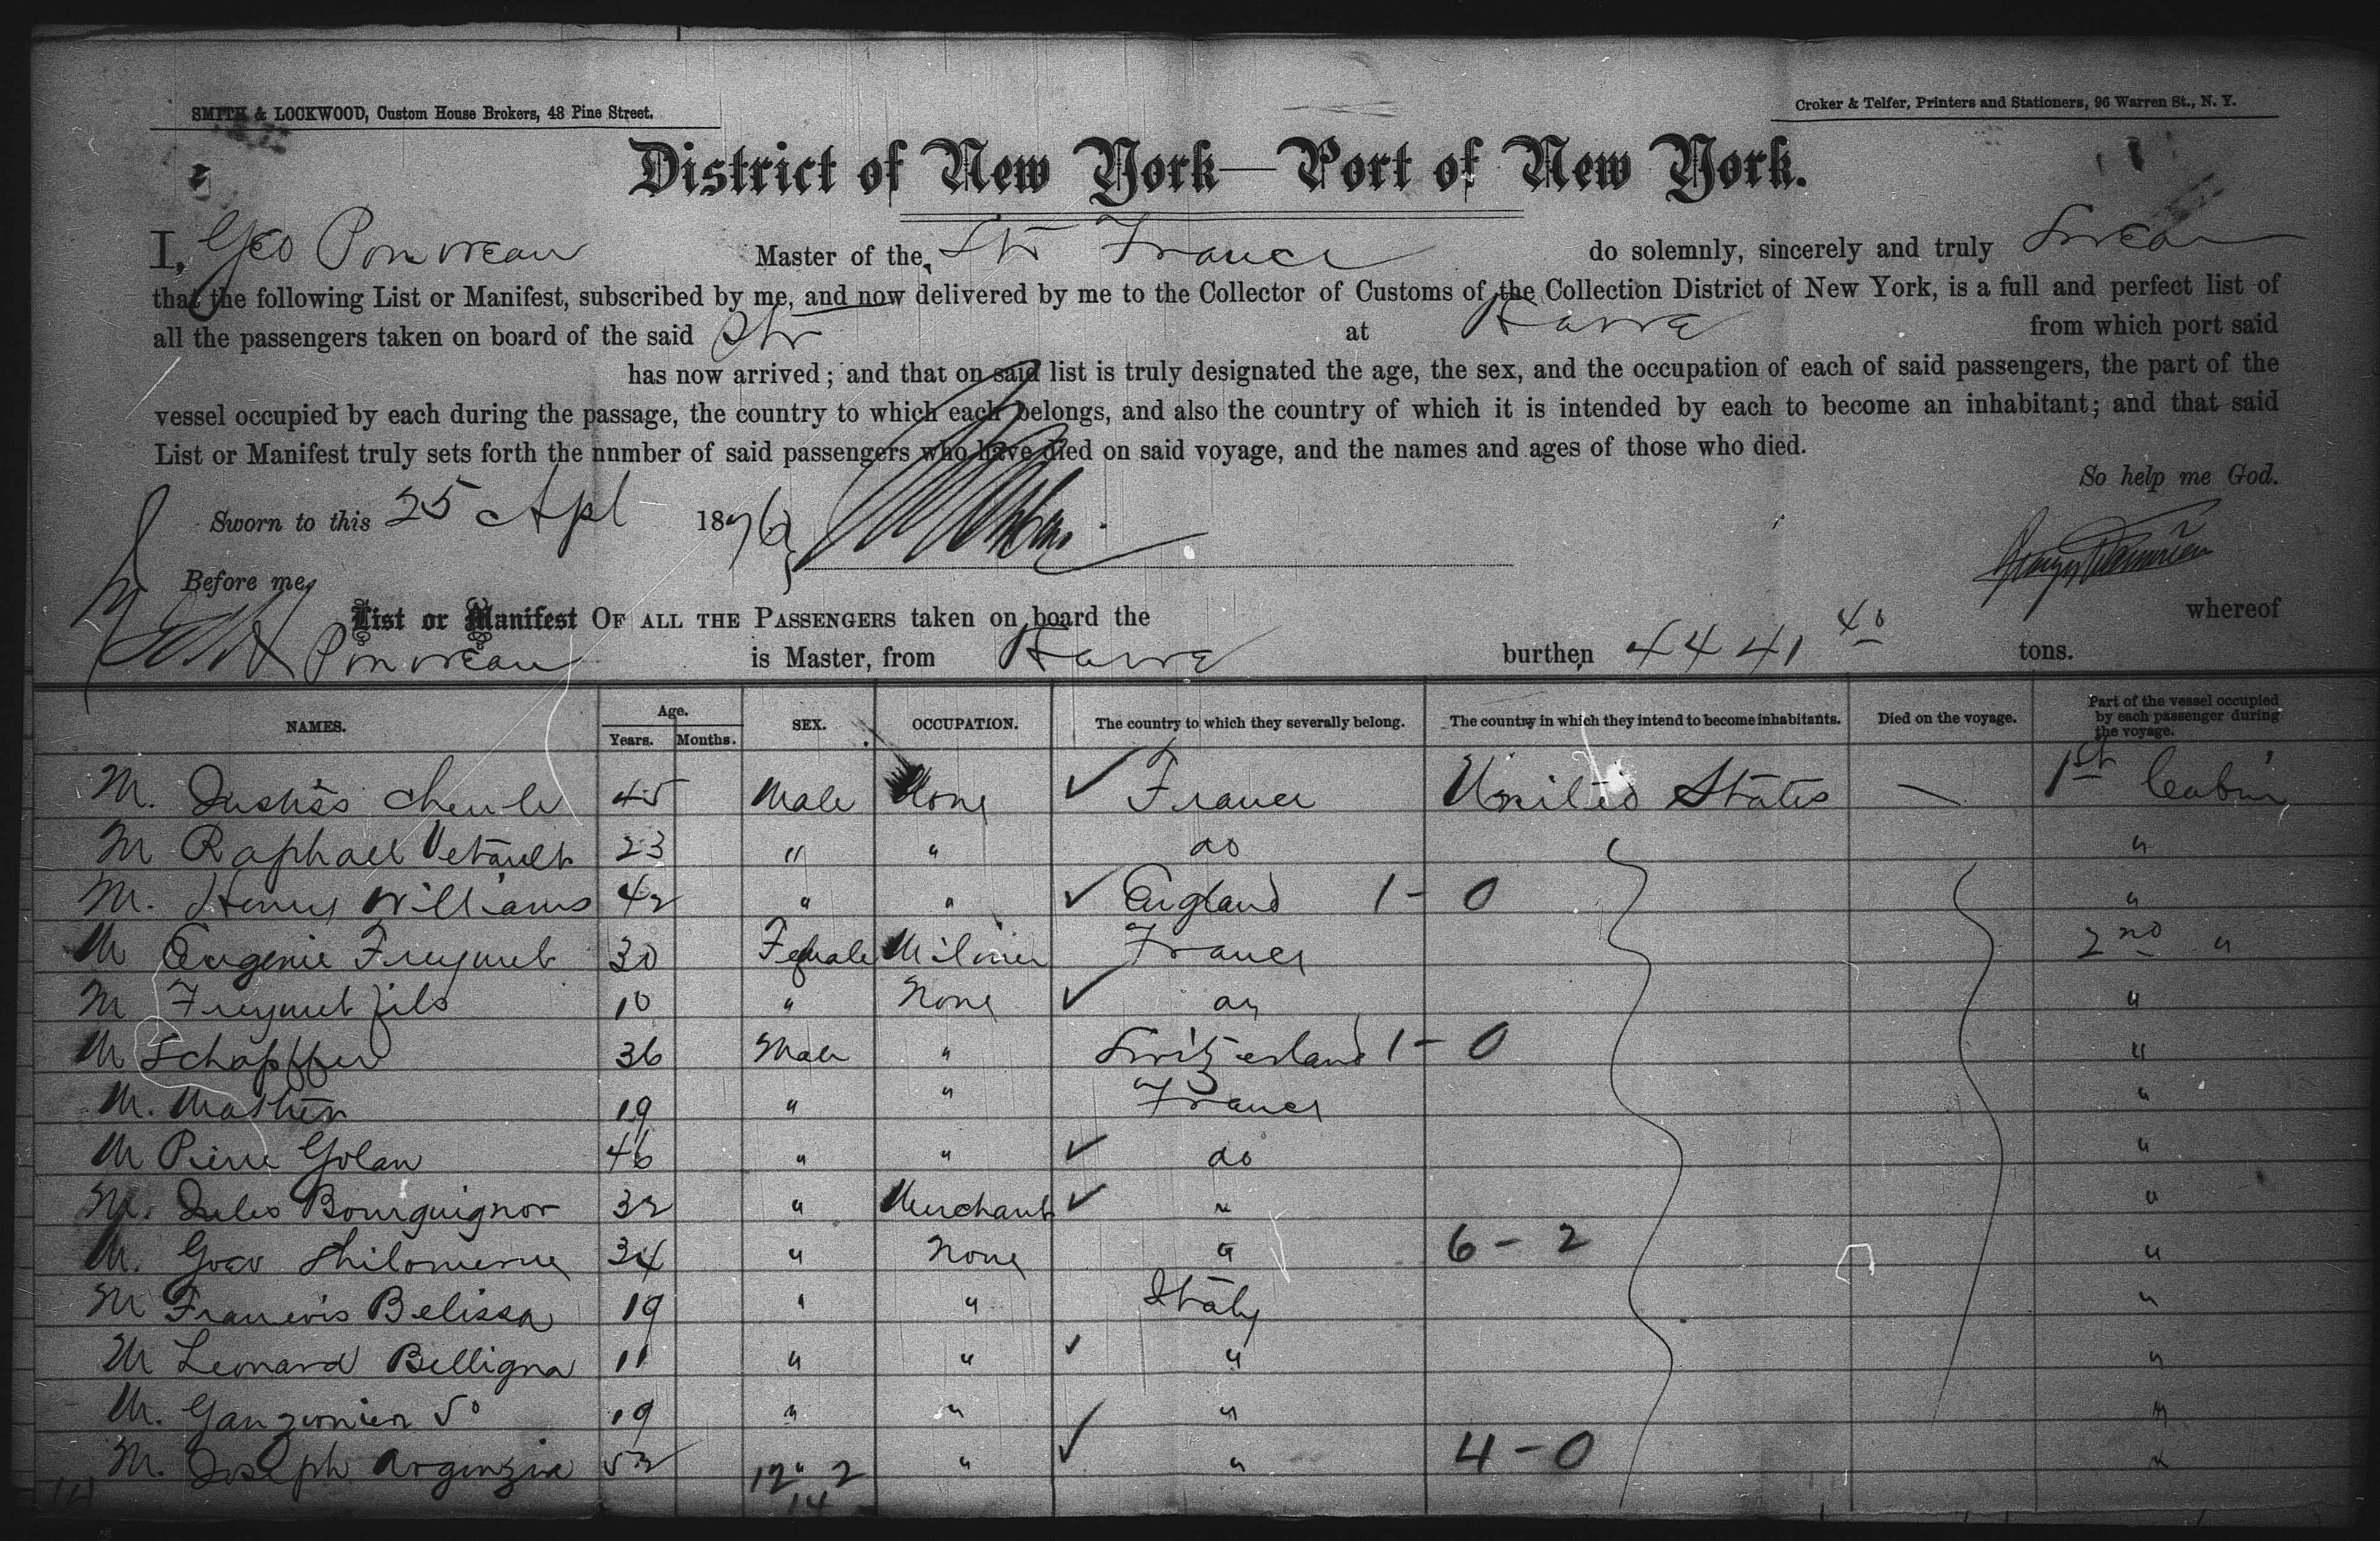 SMITH & LOCKWOOD, Custom House Brokers, 48 Pine Street.
Croker & Telfer, Printers and Stationers, 96 Warren St., N. Y.
District of New York—Port of New York.
I, Geo Master of the Str France do solemnly, sincerely and truly Swear
that the following List or Manifest, subscribed by me, and now delivered by me to the Collector of Customs of the Collection District of New York, is a full and perfect list of
all the passengers taken on board of the said Str at Havre from which port said
has now arrived; and that on said list is truly designated the age, the sex, and the occupation of each of said passengers, the part of the
vessel occupied by each during the passage, the country to which each belongs, and also the country of which it is intended by each to become an inhabitant; and that said
List or Manifest truly sets forth the nnmber of said passengers who have died on said voyage, and the names and ages of those who died.
So help me God.
Sworn to this 25 Apl 1876
Before me,
List or Manifest OF ALL THE PASSENGERS taken on board the whereof
is Master, from Havre burthen 4441 40 tons.
NAMES. Age. Years. Months. SEX. OCCUPATION. The country to which they severally belong. The country in which they intend to become inhabitants. Died on the voyage. Part of the vessel occupied by each passenger during the voyage.
M. 45 Male None France United States — 1st Cabin
M Raphael Vetault 23 " " do "
M. Henry Williams 42 " " England 1 - 0 "
M Eugenie Freymet 30 Female Miliner France 2nd "
M Freymet fils 10 " None do "
M Schapffer 36 Male " Switzerland 1 - 0 "
M. Mathin 19 " " France "
M Pierre Golan 46 " " do "
M. Jules Bourguignon 32 " Merchant " "
M. Philomene 34 " None " 6 - 2 "
M Francois Belissa 19 " " Italy "
M Leonard Belligna 11 " " " "
M. 19 " " " "
M. Joseph 52 " " " 4 - 0 "
14 12 2
14